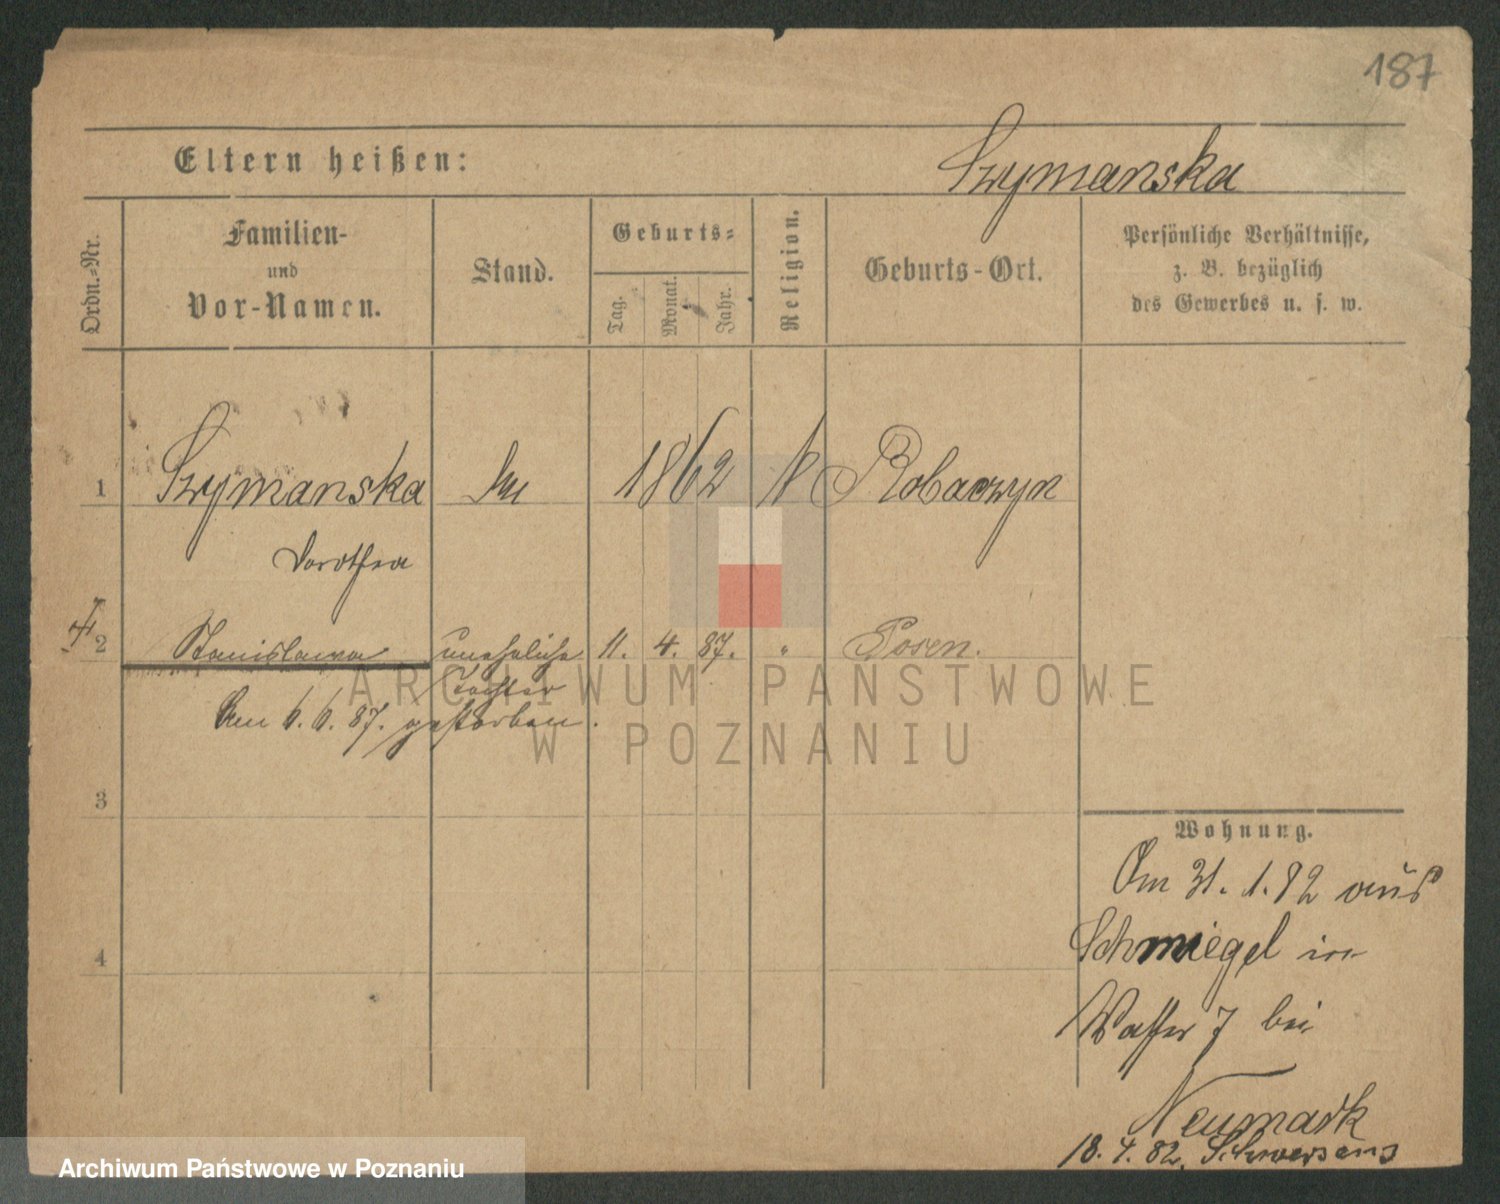 187
Eltern heißen:
Szymanska
Ordn.-Nr.
Familien-
und
Vor-Namen.
Stand.
Geburts-
Tag.
Monat.
Jahr.
Religion.
Geburts-Ort.
Persönliche Verhältnisse,
z. B. bezüglich
des Gewerbes u. s. w.
1 Szymanska 1862 Robaczyn
Dorothea
2 Stanislawa uneheliche 11. 4. 87. " Posen.
Tochter
Am 6. 6. 87. gestorben.
3
4
Wohnung.
Am 31. 1. 82 aus
Schmiegel in
Wasser 7 bei
Neumark
18. 4. 82. Schwersenz
ARCHIWUM PAŃSTWOWE
W POZNANIU
Archiwum Państwowe w Poznaniu